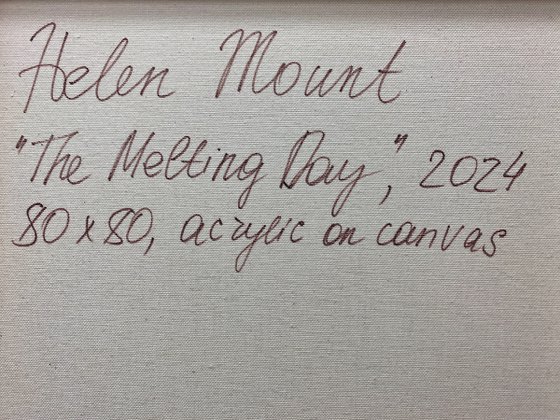 Helen Mount
"The Melting Day", 2024
80 x 80, acrylic on canvas